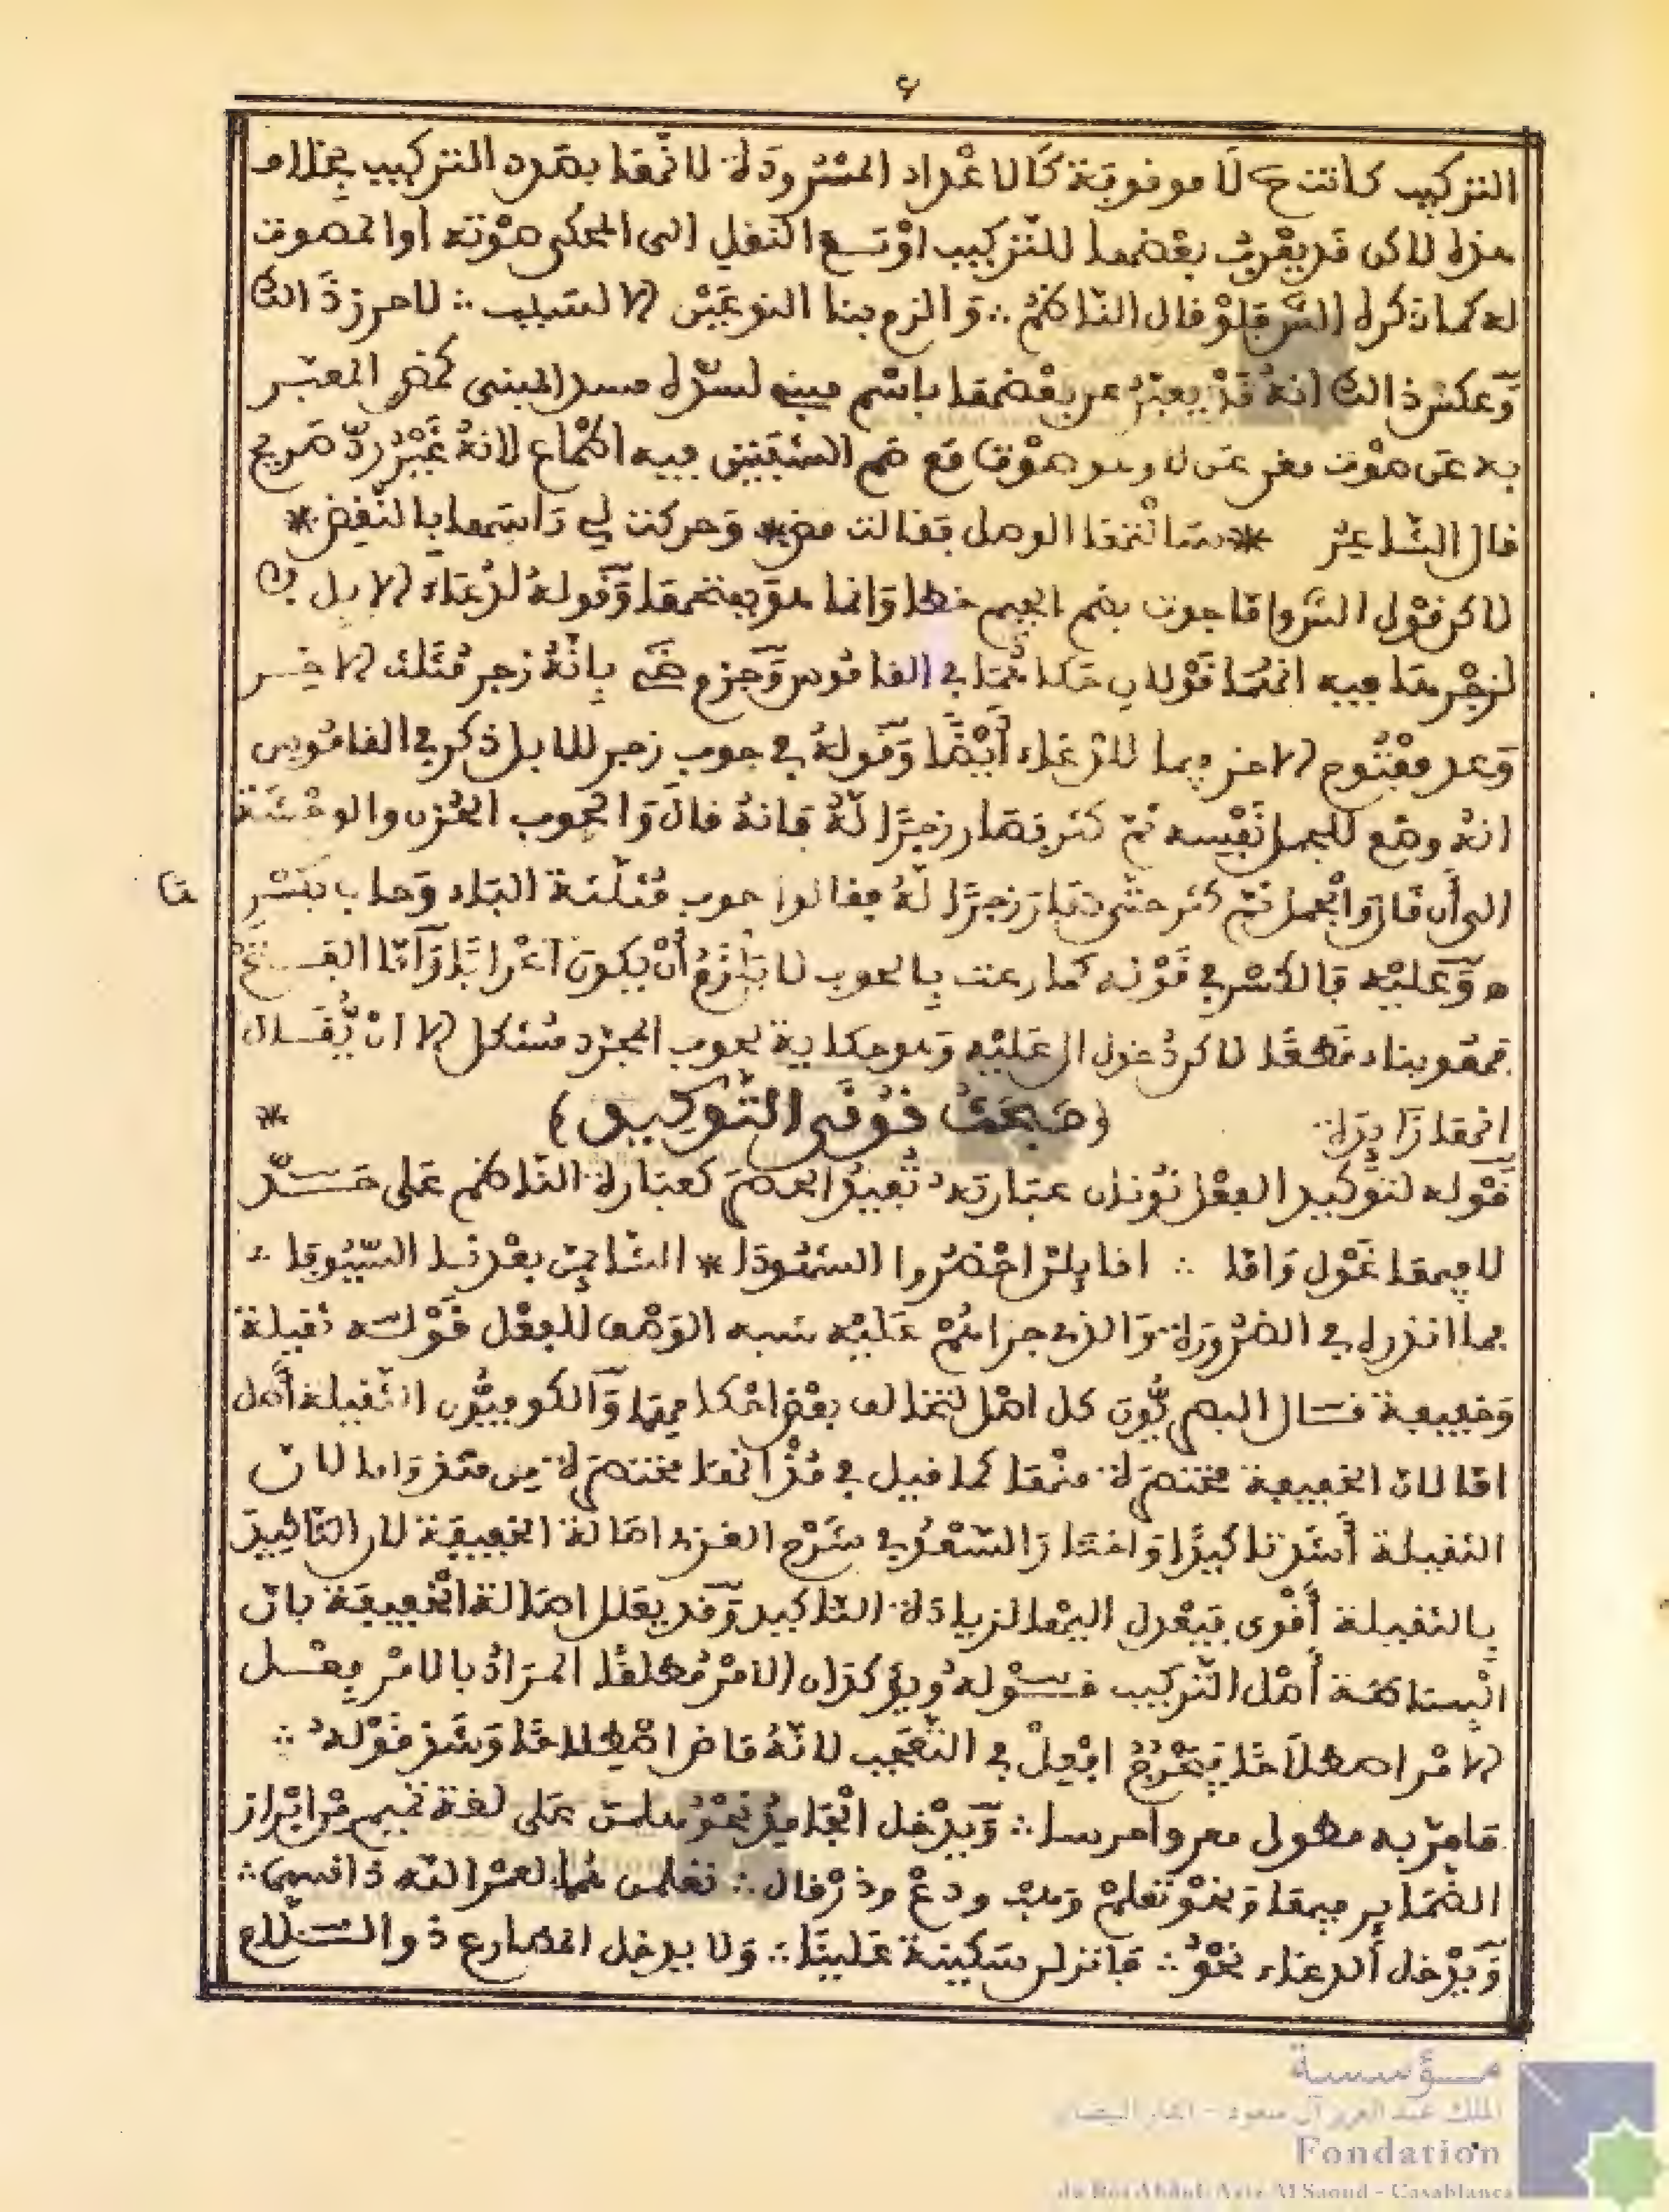 ٤
التركيب كانت ح لا موقوفة كالاعداد المسرودة لانها بصدد التركيب بخلاف
هذه لاكن قد يقرب بعضها للتركيب او تسع النقل الى المحكي صوته او المصوت
له كما ذكره الشر قبلو قال الناظم ∴ والزم بنا النوعين الا لسبب ∴ لاحرز ذالك
وعكس ذالك انه قد يعبر عن بعضها باسم مبني لسده مسد المبني كمض المعبر
به عن صوت مغن عن لا وهو صوت مع ضم الشفتين فيه اطماع لانه غير رد صريح
قال الشاعر * سالتها الوصل فقالت مض * وحركت لي راسها بالنغض *
لاكن قول الشر واما جوت بضم الجيم خطا وانما هو بفتحها وقوله لدعاء الابل
لزجرها فيه انهما قولان حكاهما في القاموس وجزم بانه زجر مثلث الاخر
وعد مفتوح الاخر فيما للدعاء أيضا وقوله في حوب زجر للابل ذكر في القاموس
انه وضع للجمل نفسه ثم كثر فصار زجرا له فانه قال والحوب الحزن والوحشة
الى أن قال والجمل ثم كثر حتى صار زجرا له فقالوا حوب مثلثة الباء وحاب بكسر
ها
ه وعليه فالكسر في قوله كما رعت بالحوب لا يلزم أن يكون اعرابا وأما الفتح
فهو بناء قطعا لاكن دخول ال عليه وهو حكاية لحوب المجرد مشكل الا ان يقال
انها زايدة (مبحث نوني التوكيد) *
قوله لتوكيد الفعل نونان عبارته تفيد الحصر كعبارة الناظم على حد
لا فيها غول واما ∴ افايلن احضروا الشهودا * الشاهرن بعدنا السيوفا ∴
فما اندره في الضرورة والذي جراهم عليه شبه الوصف للفعل قوله ثقيلة
وخفيفة قال البصريون كل اصل لتخالف بعض احكامهما والكوفيون الثقيلة أصل
اما لان الخفيفة مختصرة منها كما قيل في مذ انها مختصرة من منذ واما لان
الثقيلة أشد تاكيدا واختار السعد في شرح العزي اصالة الخفيفة لان التاكيد
بالثقيلة أقوى فيعدل اليها لزيادة التاكيد وقد يعلل اصالة الخفيفة بان
البساطة أصل التركيب قوله ويؤكدان الامر مطلقا المراد بالامر فعل
الامر اصطلاحا فيخرج افعل في التعجب لانه ماض اصطلاحا وشذ قوله ∴
فاحر به بطول فقر واحريا ∴ ويدخل الجامد نحو هلمن على لغة تميم من ابراز
الضماير فيها ونحو تعلم وهب ودع وذر قال ∴ تعلمن ها لعمر الله ذا قسما ∴
ويدخل ألدعاء نحو ∴ فانزلن سكينة علينا ∴ ولا يدخل المضارع ذو السلام
مؤسسة
الملك عبد العزيز آل سعود - الدار البيضاء
Fondation
du Roi Abdul-Aziz Al Saoud - Casablanca